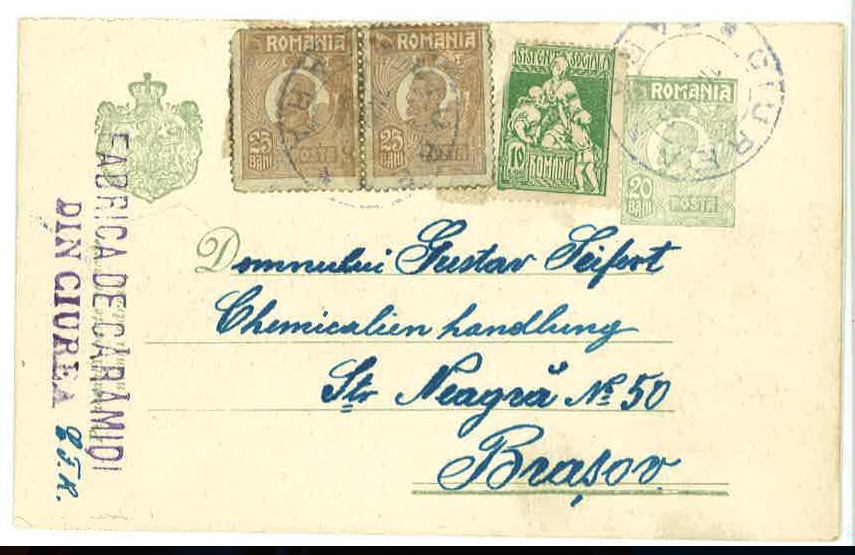 ROMANIA
25 BANI POSTA
ROMANIA
25 BANI POSTA
ASISTENȚA SOCIALA
10 ROMANIA
ROMANIA
20 BANI POSTA
CIUREA
Domnului Gustav Seifert
Chemicalien handlung
Str Neagră No 50
Brașov
FABRICA DE CĂRĂMIDI
DIN CIUREA